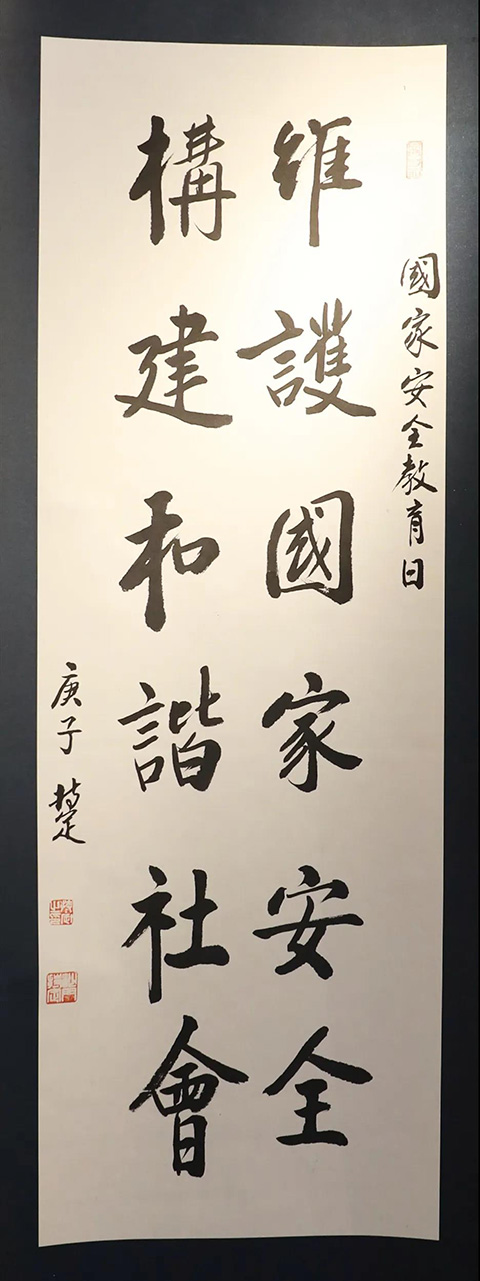 國家安全教育日
維護國家安全
構建和諧社會
庚子